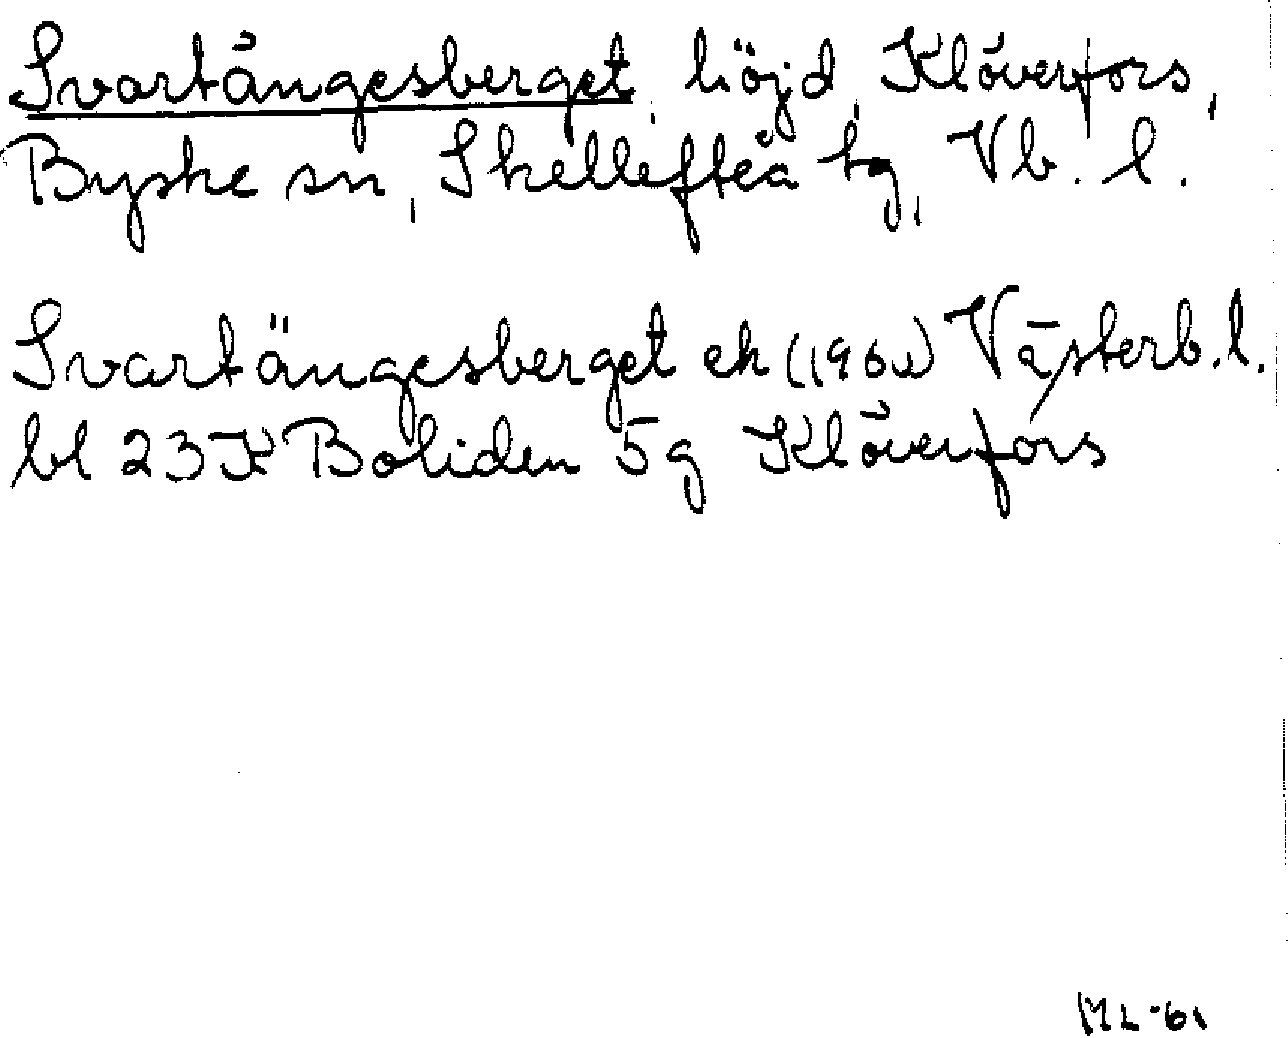 Svartängesberget, höjd, Klöverfors,
Byske sn, Skellefteå tg, Vb. l.
Svartängesberget ek (1961) Västerb. l.
bl 23K Boliden 5g Klöverfors
ML-61